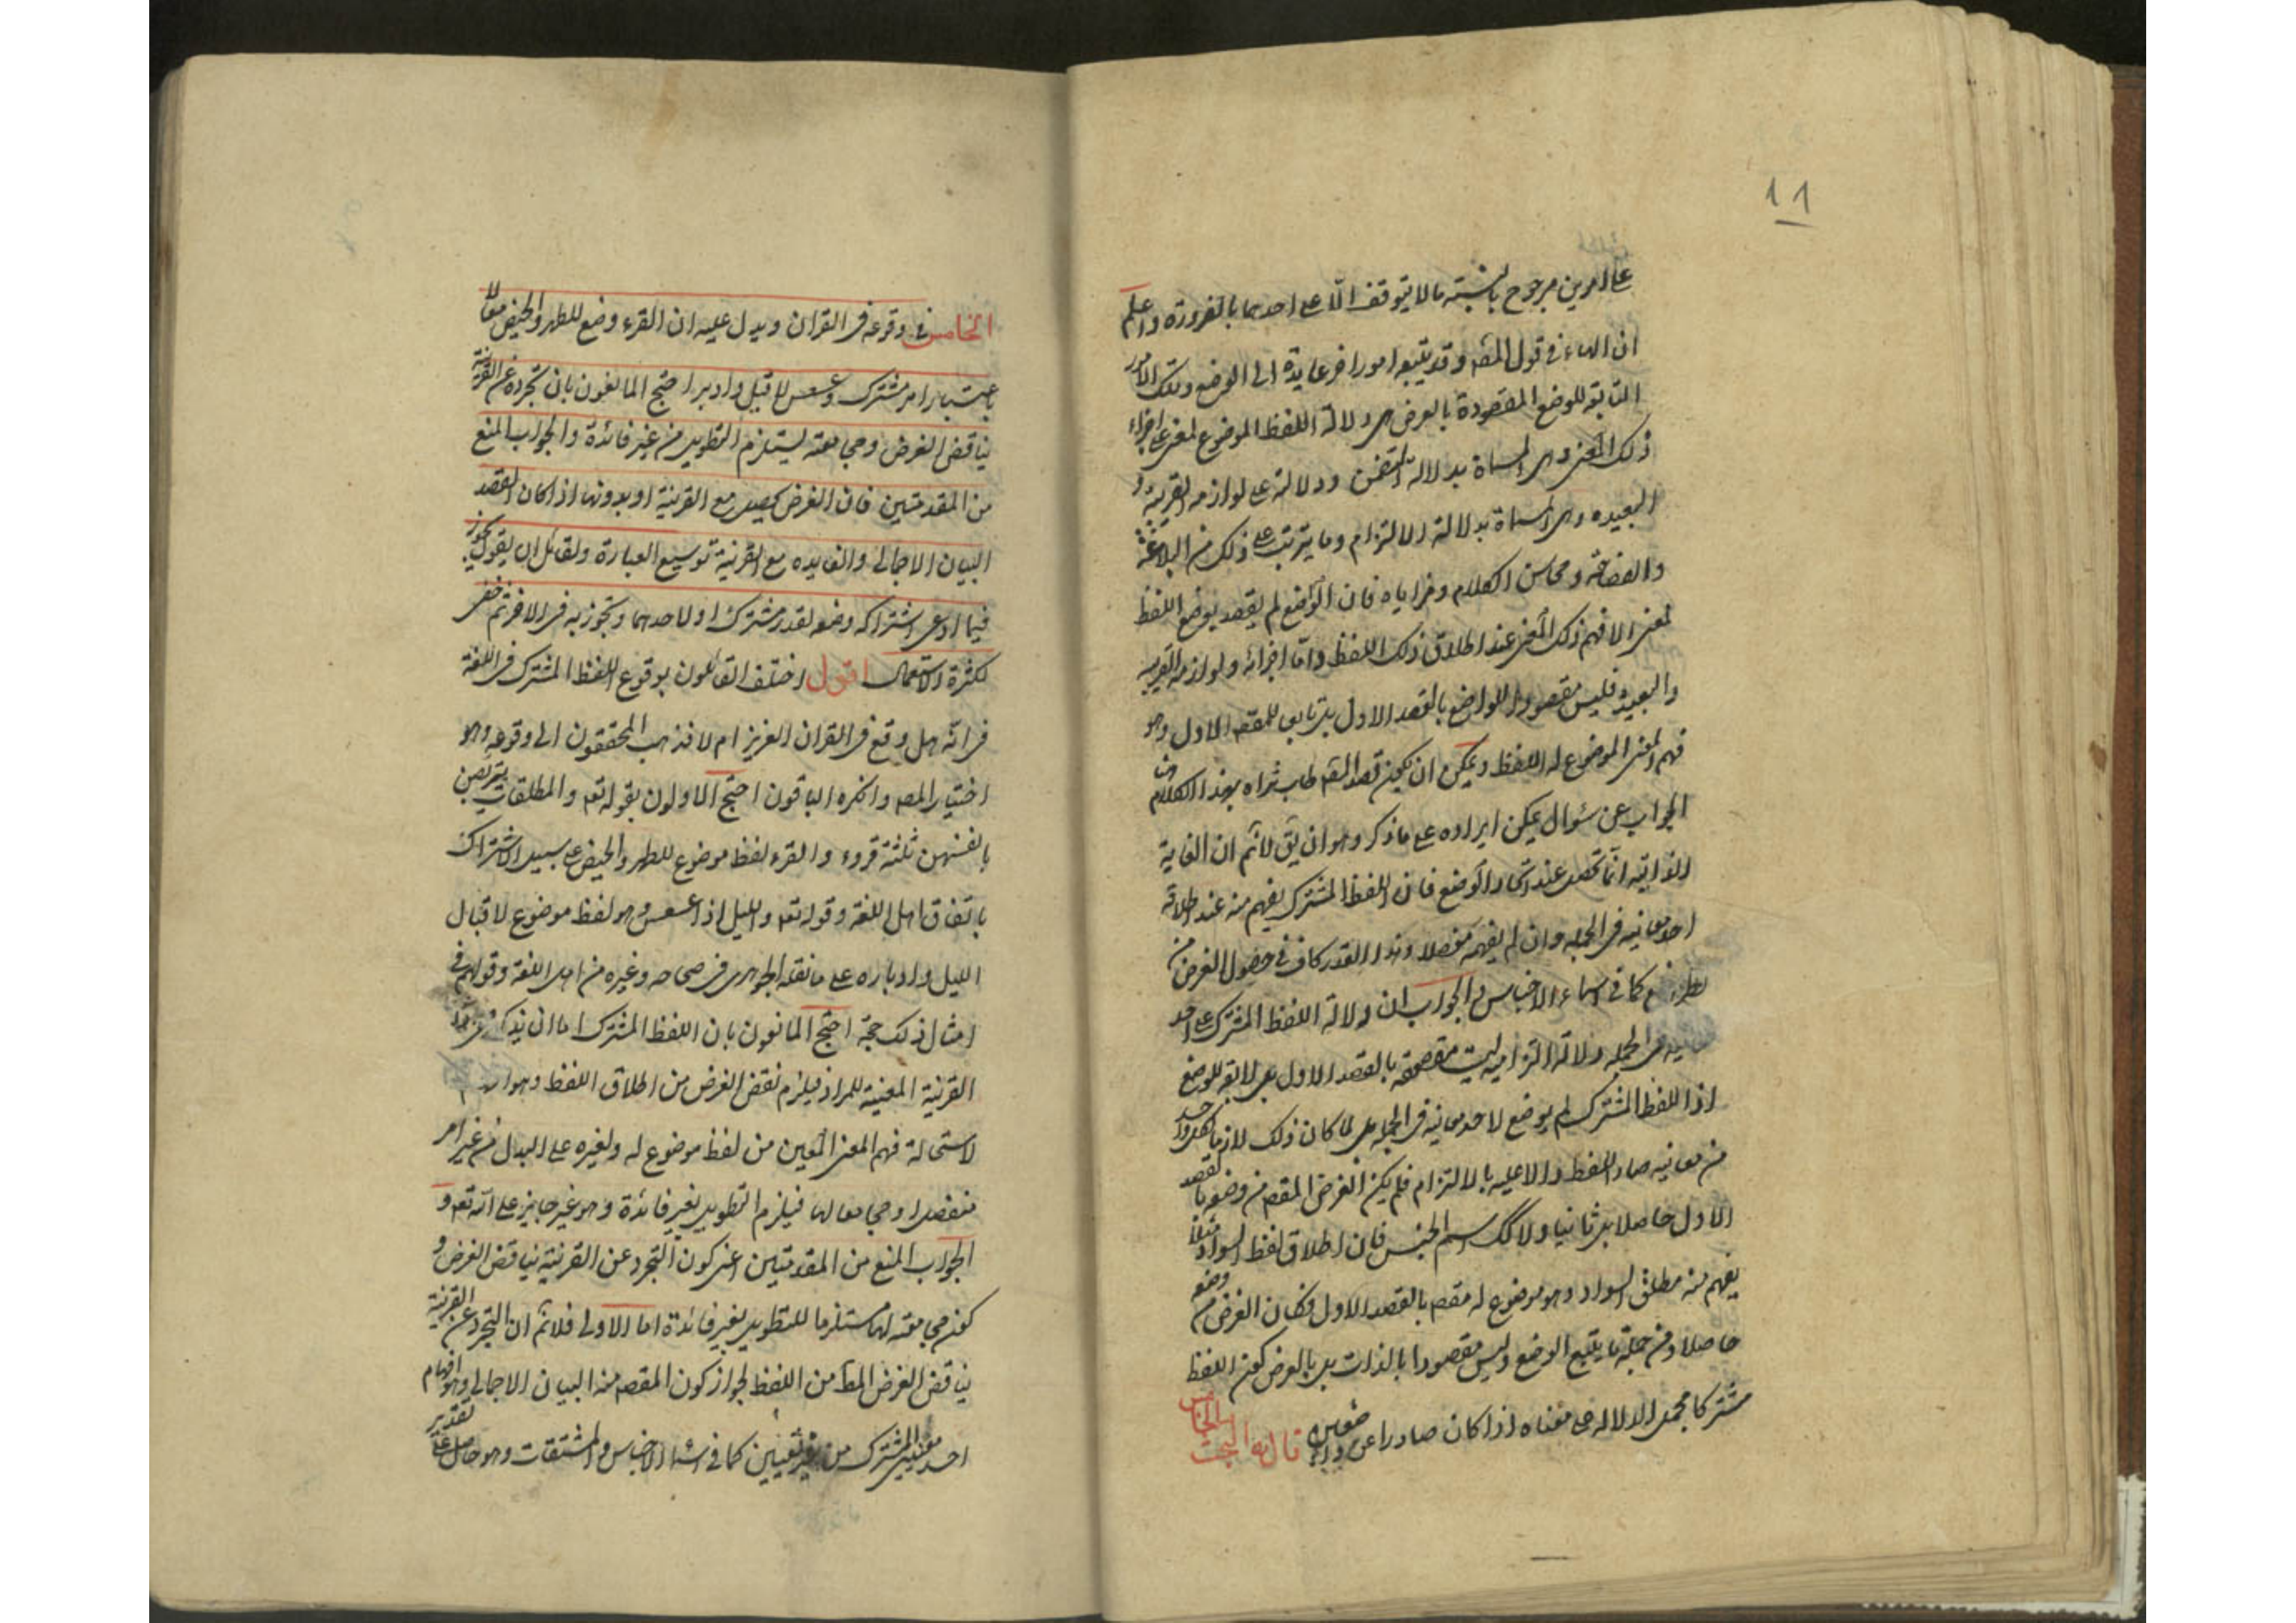 11
على امرين مرجوح بالنسبة ما لا يتوقف الا على احدهما بالضرورة واعلم
ان الهاء في قول المص وقد يتبعه امورا خر عايدة الى الوضع وتلك الامور
التابعة للوضع المقصودة بالعرض هى دلالة اللفظ الموضوع لمعنى على اجزاء
ذلك المعنى وهى المسماة بدلالة التضمن ودلالته على لوازمه القريبة و
البعيده وهى المسماة بدلالة الالتزام وما يترتب على ذلك من البلاغة
والفصاحة ومحاسن الكلام ومزاياه فان الواضع لم يقصد بوضع اللفظ
لمعنى الا فهم ذلك المعنى عند اطلاق ذلك اللفظ واما اجزائه ولوازمه القريبه
والبعيدة فليس مقصودا للواضع بالقصد الاول بل تابع للمقصد الاول وهو
فهم المعنى الموضوع له اللفظ ويمكن ان يكون قصد المص طاب ثراه بهذا الكلام
الجواب عن سئوال يمكن ايراده على ما ذكر وهو ان يق لا نم ان الغاية
الذاتية انما تحصل عند اتحاد الوضع فان اللفظ المشترك يفهم منه عند اطلاقه
احد معانيه فى الجمله وان لم يفهم مفصلا وهذا القدر كاف في حصول الغرض من
كما في اسماء الاجناس والجواب ان دلالة اللفظ المشترك على احد
فى الجمله دلالة التزامية ليست مقصودة بالقصد الاول بل تابعة للوضع
اذ اللفظ المشترك لم يوضع لاحد معانيه فى الجمله بل لما كان ذلك لازما لكل واحد
من معانيه صار اللفظ دالا عليه بالالتزام فلم يكن الغرض المقصد من وضعه بالقصد
الاول حاصلا بل ثانيا ولا كك اسم الجنس فان اطلاق لفظ السواد مثلا
يفهم منه مطلق السواد وهو موضوع له مقصد بالقصد الاول فكان الغرض من وضعه
حاصلا ومن جملة ما يتبع الوضع وليس مقصودا بالذات بل بالعرض كون اللفظ
مشتركا مجمل الدلاله على معناه اذا كان صادرا عن واضعين قال البحث الخامس
الخامس في وقوعه فى القران ويدل عليه ان القرء وضع للطهر والحيض معا لا
باعتبار امر مشترك وعسعس لاقبل وادبر احتج المانعون بان تجرده عن القرينة
يناقض الغرض ومجامعته يستلزم التطويل من غير فائدة والجواب المنع
من المقدمتين فان الغرض يحصل مع القرينة او بدونها اذا كان القصد
البيان الاجمالى والفايده مع القرينة توسيع العبارة ولقائل ان يقول يجوز
فيما ادعى اشتراكه وضعه لقدر مشترك او لاحدهما وتجوز به فى الاخر ثم خفى
لكثرة الاستعمال اقول اختلف القائلون بوقوع اللفظ المشترك فى اللغة
فى انه هل وقع فى القران العزيز ام لا فذهب المحققون الى وقوعه وهو
اختيار المص وانكره الباقون احتج الاولون بقوله تعه والمطلقات يتربصن
بانفسهن ثلثة قروء والقرء لفظ موضوع للطهر والحيض على سبيل الاشتراك
باتفاق اهل اللغة وقوله تعه والليل اذا عسعس وهو لفظ موضوع لاقبال
الليل وادباره على ما نقله الجوهرى فى صحاحه وغيره من اهل اللغة وقولهم فى
امثال ذلك حجة احتج المانعون بان اللفظ المشترك اما ان يذكر
القرينة المعينة للمراد فيلزم نقض الغرض من اطلاق اللفظ وهو
لاستحالة فهم المعنى المعين من لفظ موضوع له ولغيره على البدل من غير امر
منفصل او مجامعا لها فيلزم التطويل بغير فائدة وهو غير جايز على الله تعه و
الجواب المنع من المقدمتين اعنى كون التجرد عن القرينة يناقض الغرض و
كون مجامعته لها مستلزما للتطويل بغير فائدة اما الاولى فلا نم ان التجرد عن القرينة
يناقض الغرض المط من اللفظ لجواز كون المقصد منه البيان الاجمالى وهو افهام
احد معنيى المشترك من غير تعيين كما فى اسماء الاجناس والمشتقات وهو حاصل على تقدير